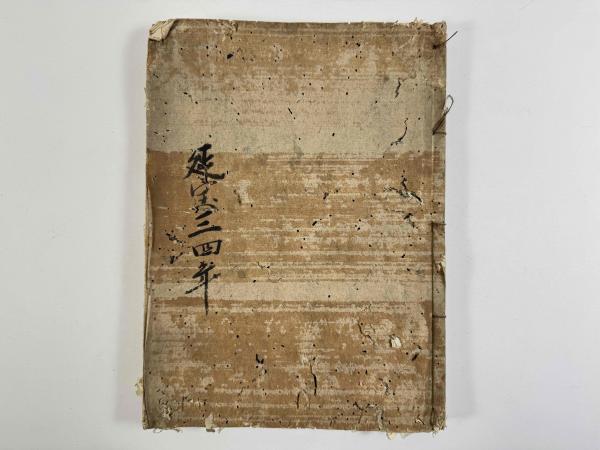 延宝三四年